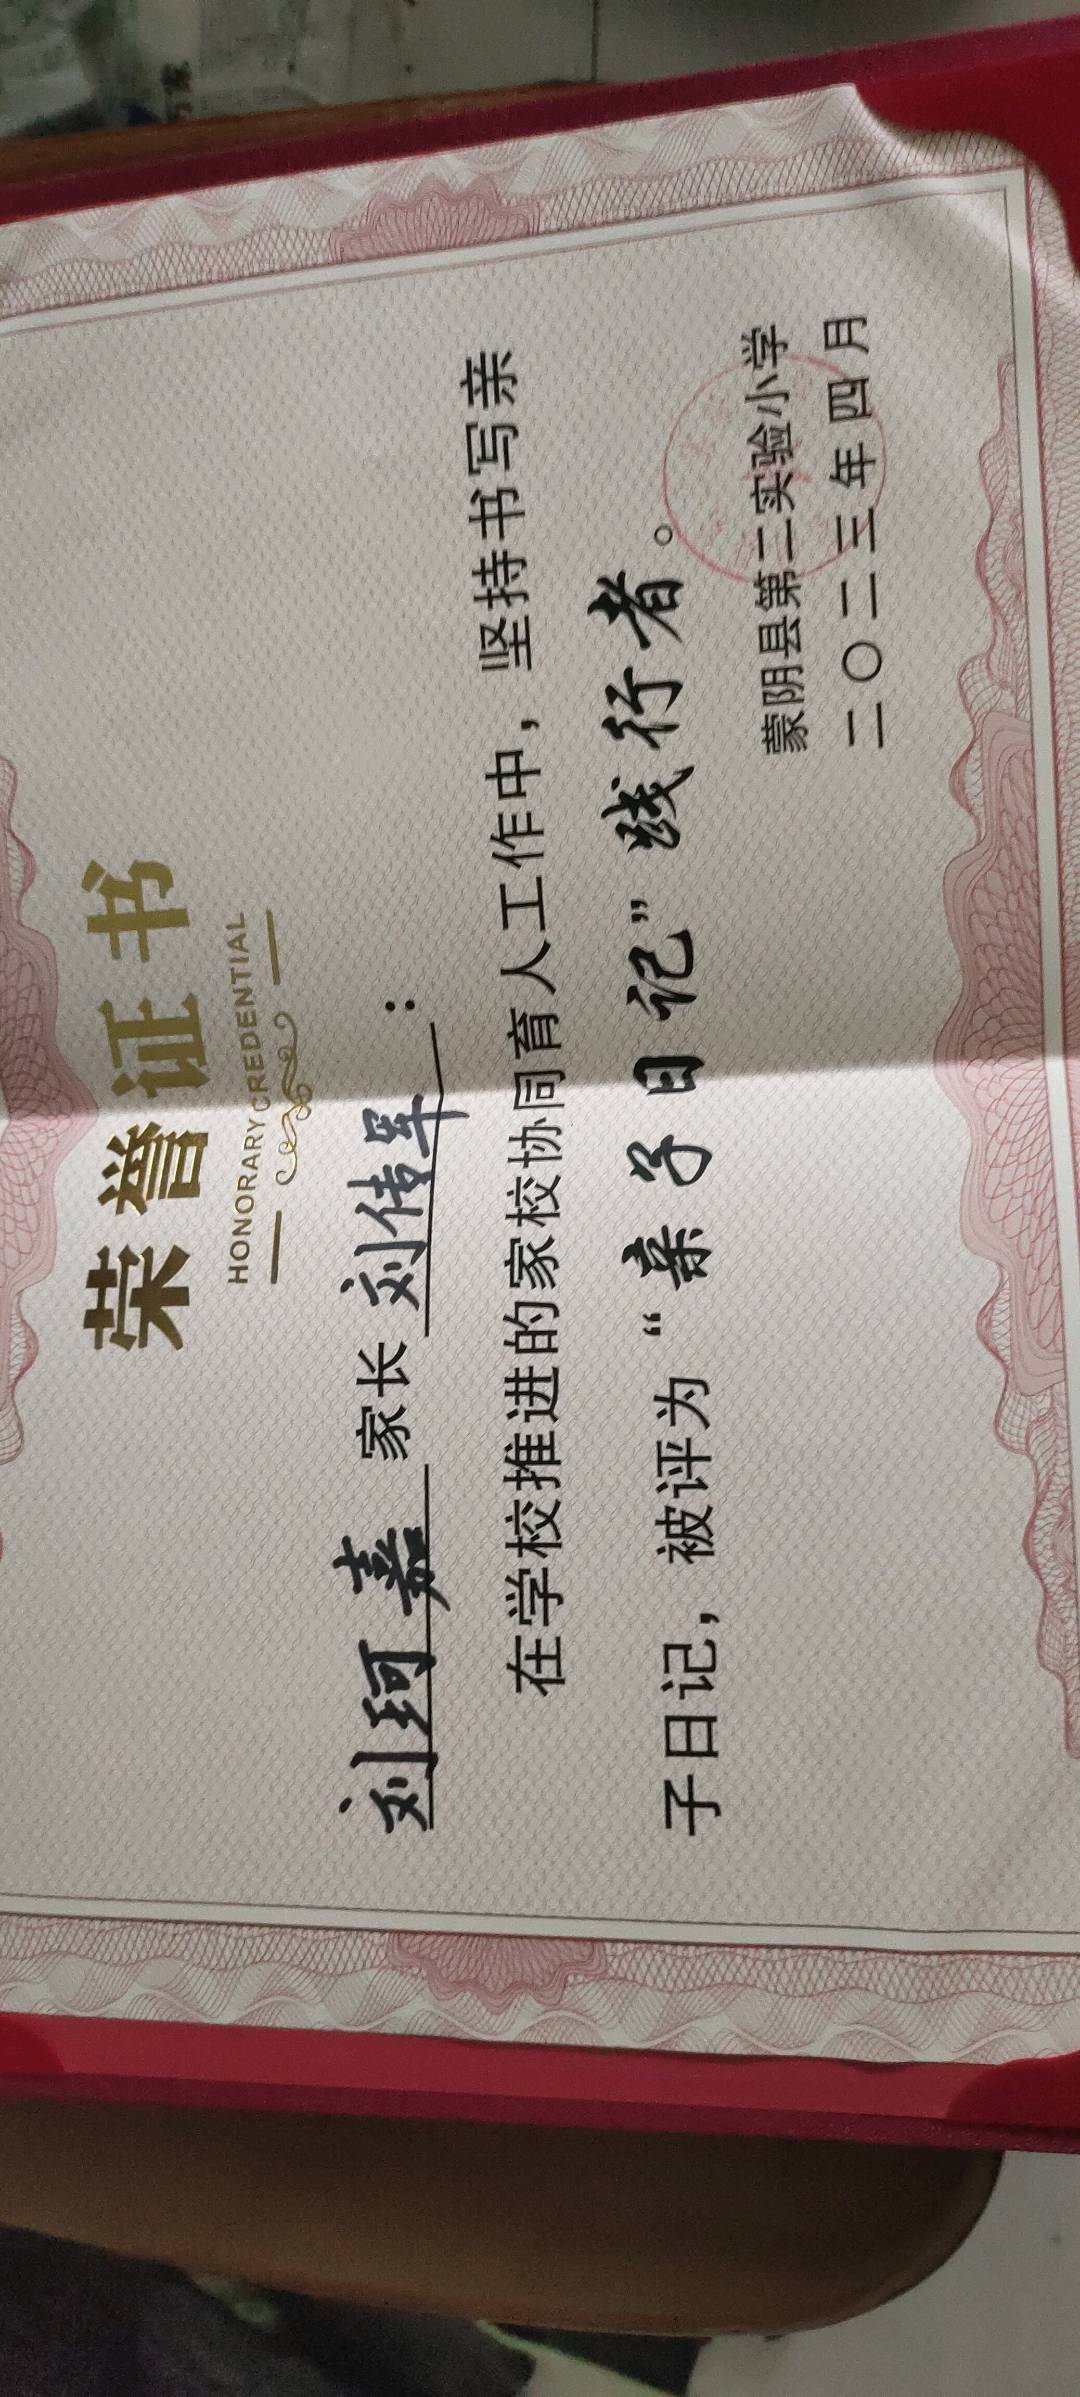 荣誉证书
HONORARY CREDENTIAL
刘珂嘉 家长 刘传军：
在学校推进的家校协同育人工作中，坚持书写亲
子日记，被评为“亲子日记”践行者。
蒙阴县第二实验小学
二〇二三年四月